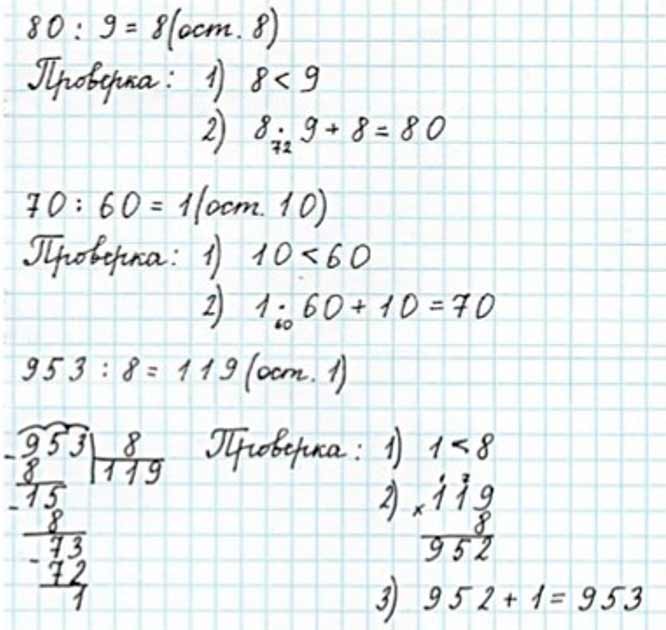 80 : 9 = 8 (ост. 8)
Проверка: 1) 8 < 9
2) 8 · 9 + 8 = 80
72
70 : 60 = 1 (ост. 10)
Проверка: 1) 10 < 60
2) 1 · 60 + 10 = 70
60
953 : 8 = 119 (ост. 1)
- 953 | 8
8 | 119
- 15
8
- 73
72
1
Проверка: 1) 1 < 8
1 7
2) × 119
8
952
3) 952 + 1 = 953